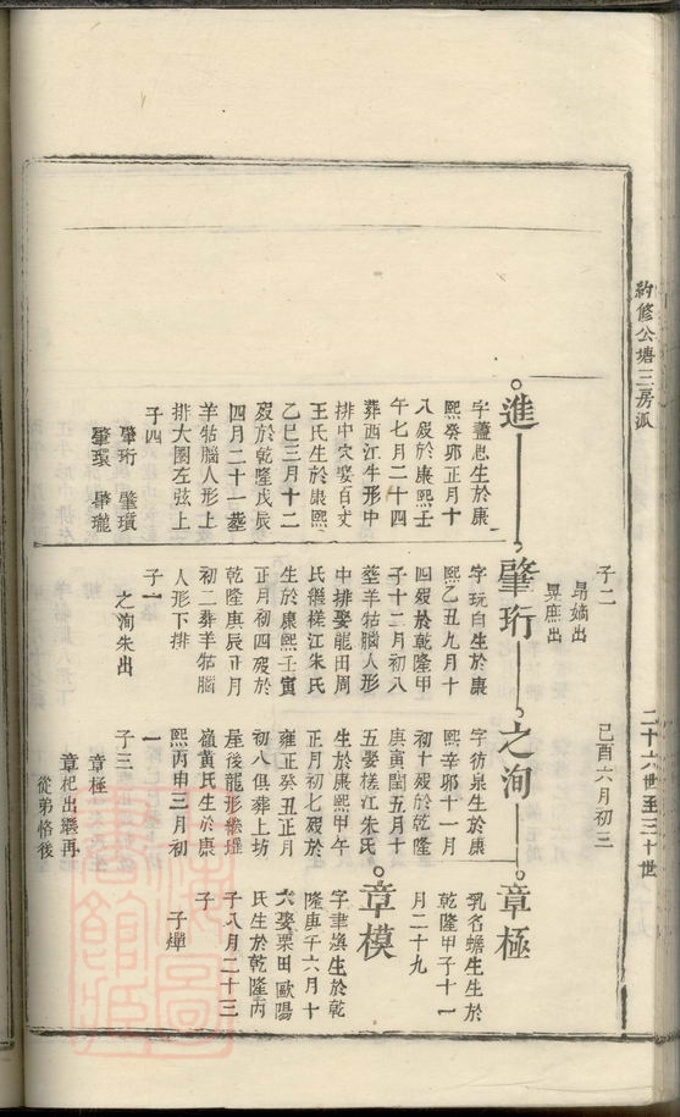 約修公塘三房派
二十六世至三十世
子二
昴嫡出
晃庶出
己酉六月初三
進
字藎思生於康
熙癸卯正月十
八歿於康熙壬
午七月二十四
葬西江牛形中
排中穴娶百丈
王氏生於康熙
乙巳三月十二
歿於乾隆戊辰
四月二十一葬
羊牯腦人形上
排大圈左弦上
子四
肇珩 肇璸
肇環 肇瓏
肇珩
字玩白生於康
熙乙丑九月十
四歿於乾隆甲
子十二月初八
塟羊牯腦人形
中排娶龍田周
氏繼槎江朱氏
生於康熙壬寅
正月初四歿於
乾隆庚辰正月
初二葬羊牯腦
人形下排
子一
之洵朱出
之洵
字彷泉生於康
熙辛卯十一月
初十歿於乾隆
庚寅閏五月十
五娶槎江朱氏
生於康熙甲午
正月初七歿於
雍正癸丑正月
初八俱葬上坊
屋後龍形繼
嶺黃氏生於康
熙丙申三月初
一
子三
章極
章杞出繼再
從弟恪後
章極
乳名蟾生生於
乾隆甲子十一
月二十九
章模
字聿 生於乾
隆庚午六月十
六娶栗田歐陽
氏生於乾隆丙
子八月二十三
子
子燀